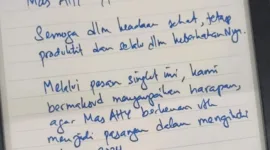 Mas AHY
Semoga dlm keadaan sehat, tetap
produktif dan selalu dlm keberkahanNya.
Melalui pesan singkat ini, kami
bermaksud menyampaikan harapan,
agar Mas AHY berkenan utk
menjadi pasangan dalam mengikuti